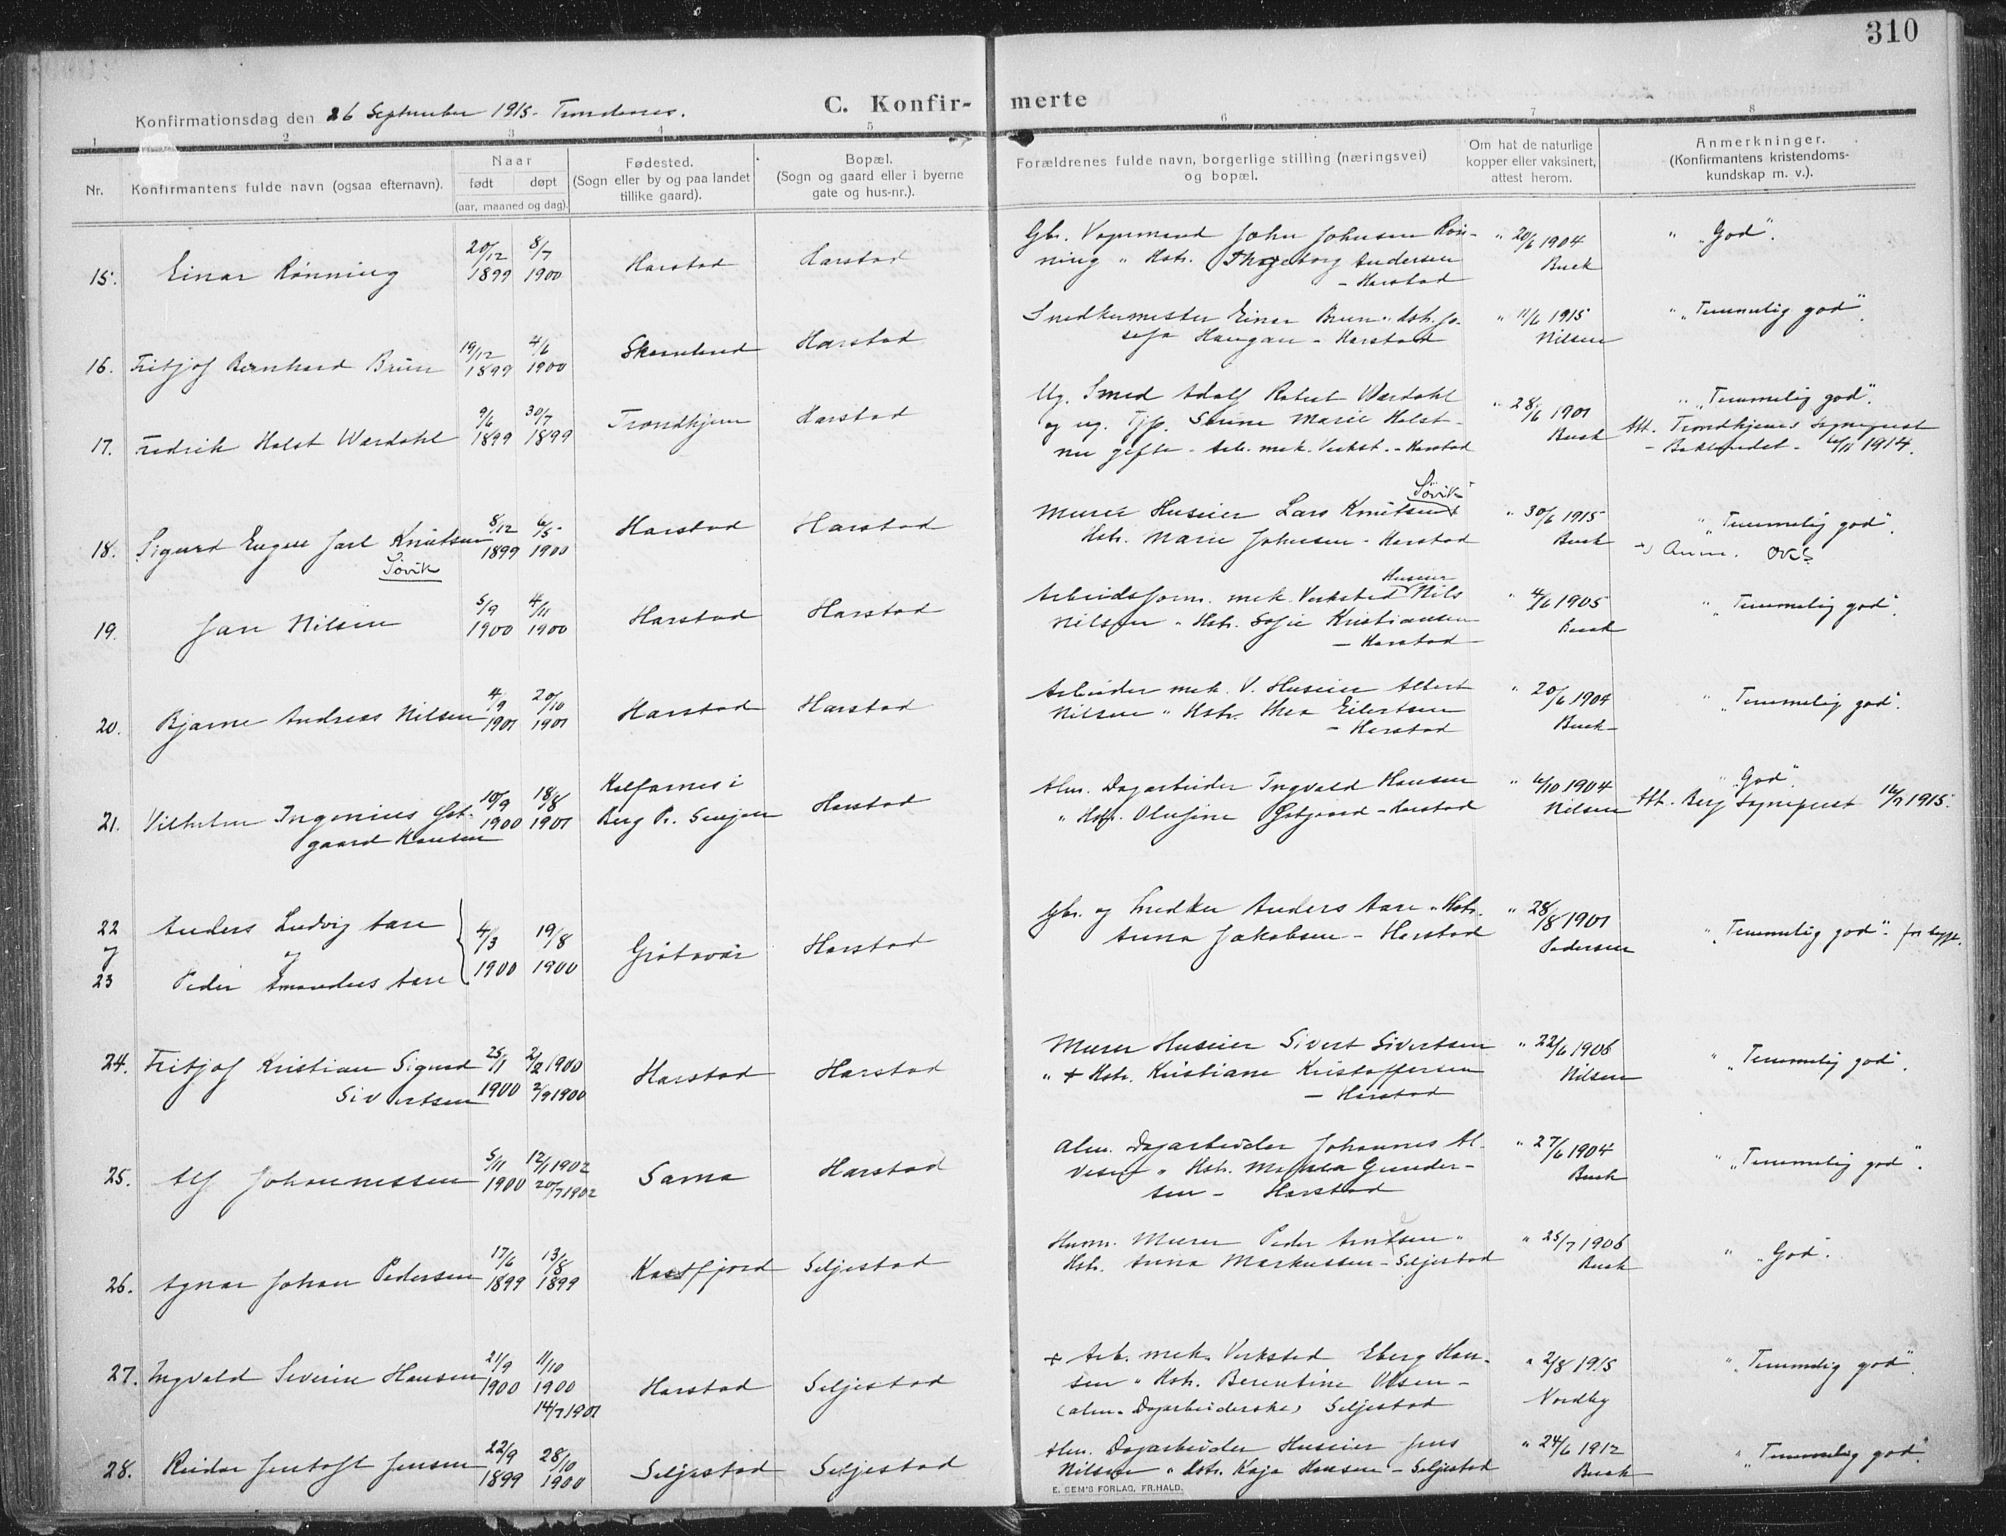 310
C. Konfir- merte
Konfirmationsdag den 26 September 1915. Trondenes.
1 2 3 4 5 6 7 8
Nr.
Konfirmantens fulde navn (ogsaa efternavn).
Naar
født døpt
(aar, maaned og dag).
Fødested.
(Sogn eller by og paa landet
tillike gaard).
Bopæl.
(Sogn og gaard eller i byerne
gate og hus-nr.).
Forældrenes fulde navn, borgerlige stilling (næringsvei)
og bopæl.
Om hat de naturlige
kopper eller vaksinert,
attest herom.
Anmerkninger.
(Konfirmantens kristendoms-
kundskap m. v.).
15. Einar Rønning 20/12 1899 8/7 1900 Harstad Harstad
Gbr. Vognmand John Johnsen Røn-
ning " Hstr. Ingeborg Andersen
- Harstad
" 20/6 1904
Buck
" "God".
16. Fritjof Bernhard Brun 19/12 1899 4/6 1900 Skaanland Harstad
Snedkermester Einar Brun " Hstr. Jo-
sefa Haugan - Harstad
" 11/6 1915
Nilsen
" "Temmelig god".
17. Fredrik Holst Wærdahl 9/6 1899 30/7 1899 Trondhjem Harstad
Ug. Smed Adolf Robert Wærdahl
og ug. Tjp. Serine Marie Holst -
nu gifte - Arb. mek. Verkst. - Harstad
" 28/6 1901
Buck
" "Temmelig god".
Att. Trondhjems Sogneprest
- Baklandet - 6/11 1914.
18. Sigurd Eugen Jarl Knutsen 8/12 1899 6/5 1900 Harstad Harstad
Søvik
Søvik
Murer Huseier Lars Knutsen +
Hstr. Marie Johnsen - Harstad
" 30/6 1915
Buck
" "Temmelig god".
+) Anm.
19. Jan Nilsen 5/9 1900 4/11 1900 Harstad Harstad
Huseier
Arbeidsform. mek. Verksted Nils
Nilsen " Hstr. Sofie Kristiansen
- Harstad
" 4/6 1905
Buck
" "Temmelig god".
20. Bjarne Andreas Nilsen 4/9 1901 20/10 1901 Harstad Harstad
Arbeider mek. V. Huseier Albert
Nilsen " Hstr. Thea Eilertsen
- Harstad
" 20/6 1904
Buck
" "Temmelig god".
21. Vilhelm Ingenius Øst- 10/9 1900 18/8 1901 Kalfarnes i Harstad
gaard Hansen Berg Pr. Senjen
Alm. Dagarbeider Ingvald Hansen
" Hstr. Olufine Østgaard - Harstad
" 6/10 1904
Nilsen
" "God".
Att. Berg Sogneprest 16/7 1915.
22 Anders Ludvig Aare
og og 4/3 1900 19/8 1900 Grøtavær Harstad
23 Peder Amandus Aare
Gbr. og Snedker Anders Aare " Hstr.
Anna Jakobsen - Harstad
" 28/8 1901
Pedersen
" "Temmelig god". for begge.
24. Fritjof Kristian Sigurd 25/1 1900 2/2 1900 Harstad Harstad
Sivertsen 2/9 1900
Murer Huseier Sivert Sivertsen
" + Hstr. Kristiane Kristoffersen
- Harstad
" 22/6 1906
Nilsen
" "Temmelig god".
25. Alf Johannessen 5/11 1900 12/1 1902 20/7 1902 Sama Harstad
Alm. Dagarbeider Johannes Al-
" Hstr. Gunder-
sen - Harstad
" 27/6 1904
Buck
" "Temmelig god".
26. Agnar Johan Pedersen 17/6 1899 13/8 1899 Kastfjord Seljestad
Husm. Murer Peder Arntsen "
Hstr. Anna Markussen - Seljestad
" 25/7 1906
Buck
" "God".
27. Ingvald Severin Hansen 21/9 1900 11/10 1900 14/7 1901 Harstad Seljestad
+ Arb. mek. Verksted Eberg Han-
sen " Hstr. Berentine Olsen -
(alm. Dagarbeiderske) Seljestad
" 2/8 1915
Nordby
" "Temmelig god".
28. Reidar Jentoft Jensen 22/9 1899 28/10 1900 Seljestad Seljestad
Alm. Dagarbeider Huseier Jens
Nilsen " Hstr. Kaja Hansen - Seljestad
" 24/6 1912
Buck
" "Temmelig god".
E. SEM'S FORLAG, FR.HALD.